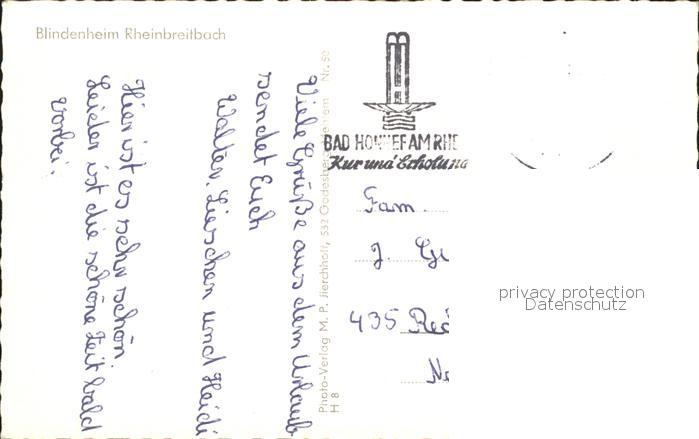 Blindenheim Rheinbreitbach
Viele Grüße aus dem Urlaub
sendet Euch
Walter, Lieschen und Heidi
Hier ist es sehr schön.
Leider ist die schöne Zeit bald
vorbei.
Photo-Verlag M. P. 532 Nr. 50
H 8
BAD HONNEF AM RHE
Kur und Erholung
Fam.
J. Ge
435 Rec
Nr
privacy protection
Datenschutz